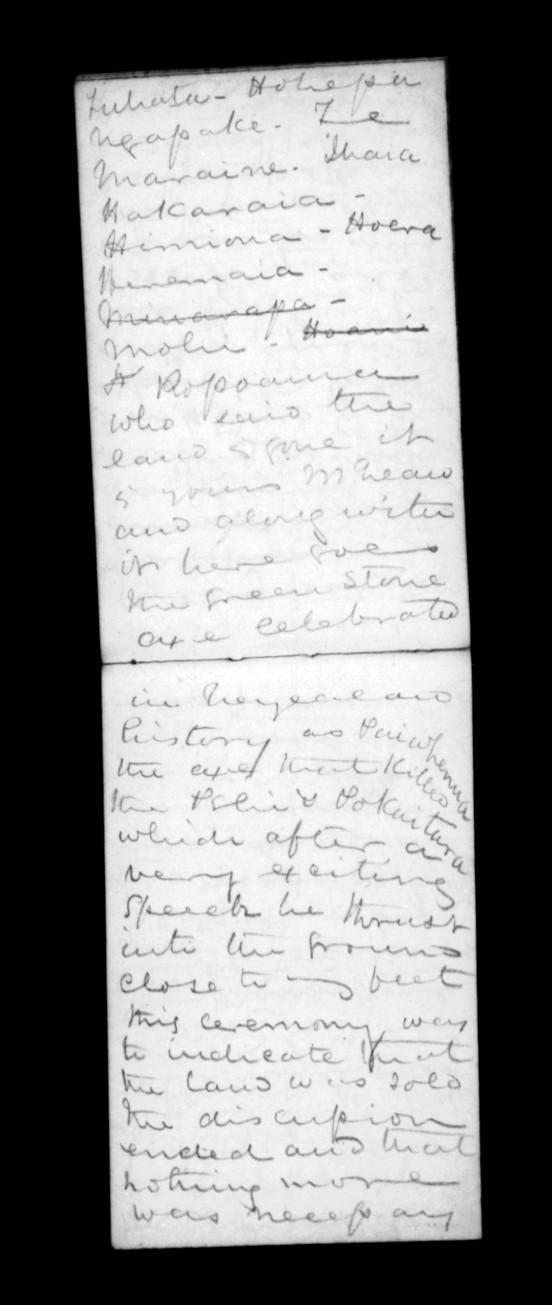 Tuhata - Hohepa
Ngapake. Te
Maraine. Ihaia
Kakaraia -
Himiona - Hoera
Heremaia -
Minarapa -
Mohi - Hoani
Ropoama
who said the
land is gone it
is yours McLean
and along with
it here goes
the green stone
axe celebrated
in New Zealand
history as Paiwhenua
the axe that killed
the & Pokaitara
which after a
very exciting
speech he thrust
into the ground
close to my feet
this ceremony was
to indicate that
the land was sold
the discussion
ended and that
nothing more
was necessary